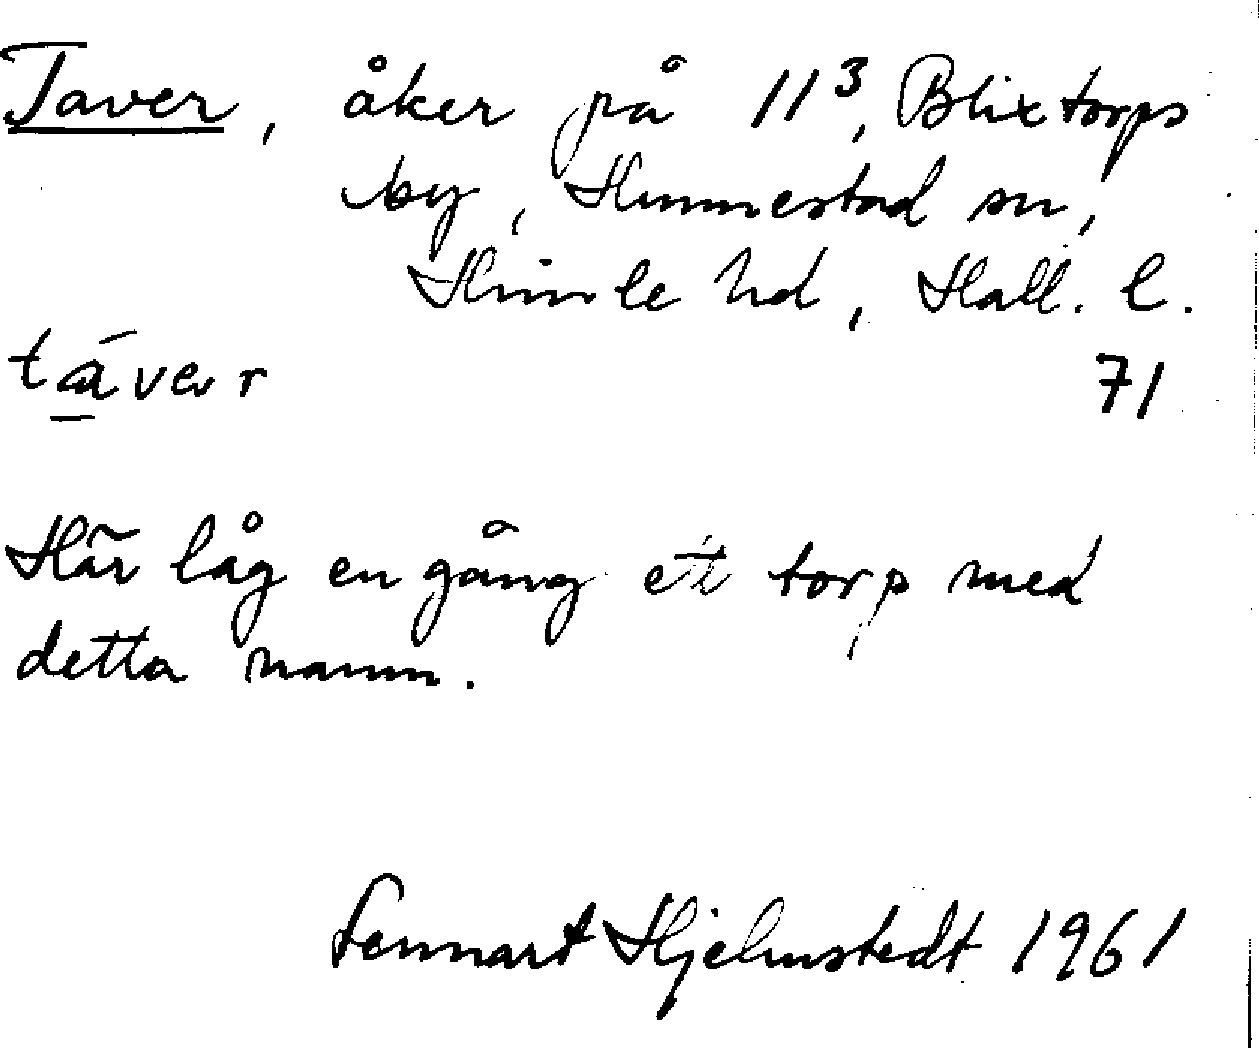 Taver, åker på 11³, Blixtorps
by, Hunnestad sn,
Himle hd, Hall. l.
táver 71
Här låg en gång ett torp med
detta namn.
Lennart Hjelmstedt 1961